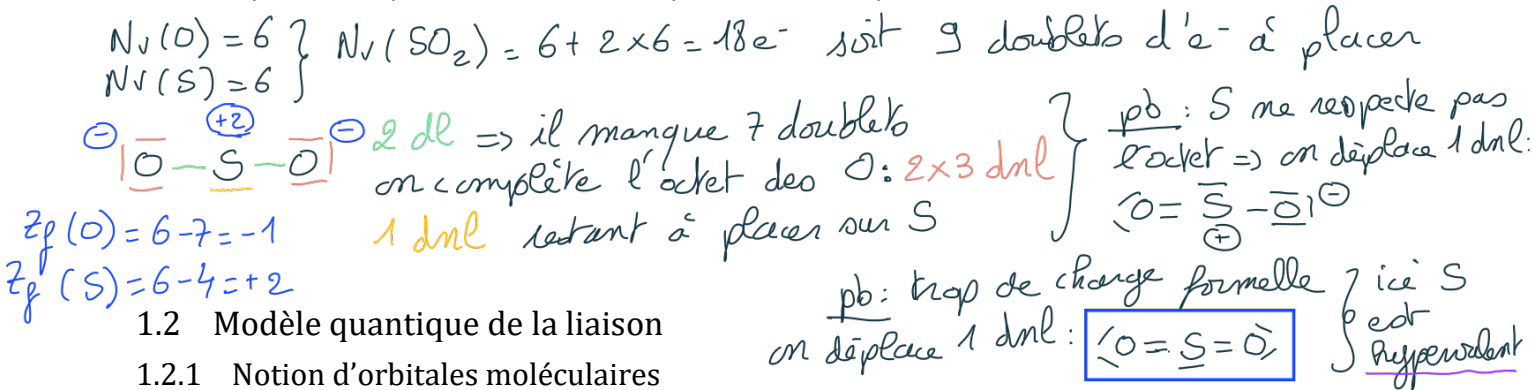 Nv(O) = 6 } Nv(SO₂) = 6 + 2×6 = 18e⁻ soit 9 doublets d'e⁻ à placer
Nv(S) = 6
⊖ |O – S – O| ⊖ +2 2 dl => il manque 7 doublets
on complète l'octet des O : 2×3 dnl
1 dnl restant à placer sur S
pb : S ne respecte pas
l'octet => on déplace 1 dnl :
⟨O = S – O| ⊖
⊕
Zf (O) = 6-7 = -1
Zf (S) = 6-4 = +2
pb : trop de charge formelle } ici S
on déplace 1 dnl : ⟨O = S = O⟩ est
hypervalent
1.2 Modèle quantique de la liaison
1.2.1 Notion d'orbitales moléculaires